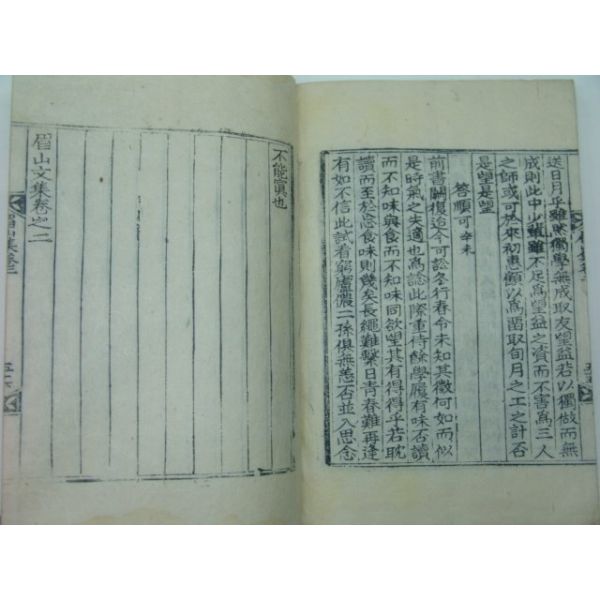 送日月乎雖然獨學無成取友望益若以獨做而無
成則此中少輩雖不足爲望益之資而不害爲三人
之師或可於來初惠顧以爲團取旬月之工之計否
是望是望
答順可辛未
前書闕復迨今可訟冬行春令未知其徵何如而似
是時氣之失適也爲訟此際重侍餘學履有味否讀
而不知味與食而不知味同欲望其有得得乎若耽
讀而至於忘食味則幾矣長繩難繫日青春難再逢
有如不信此試看窮廬儂二孫俱無恙否並入思念
不能寘也
眉山文集卷之二